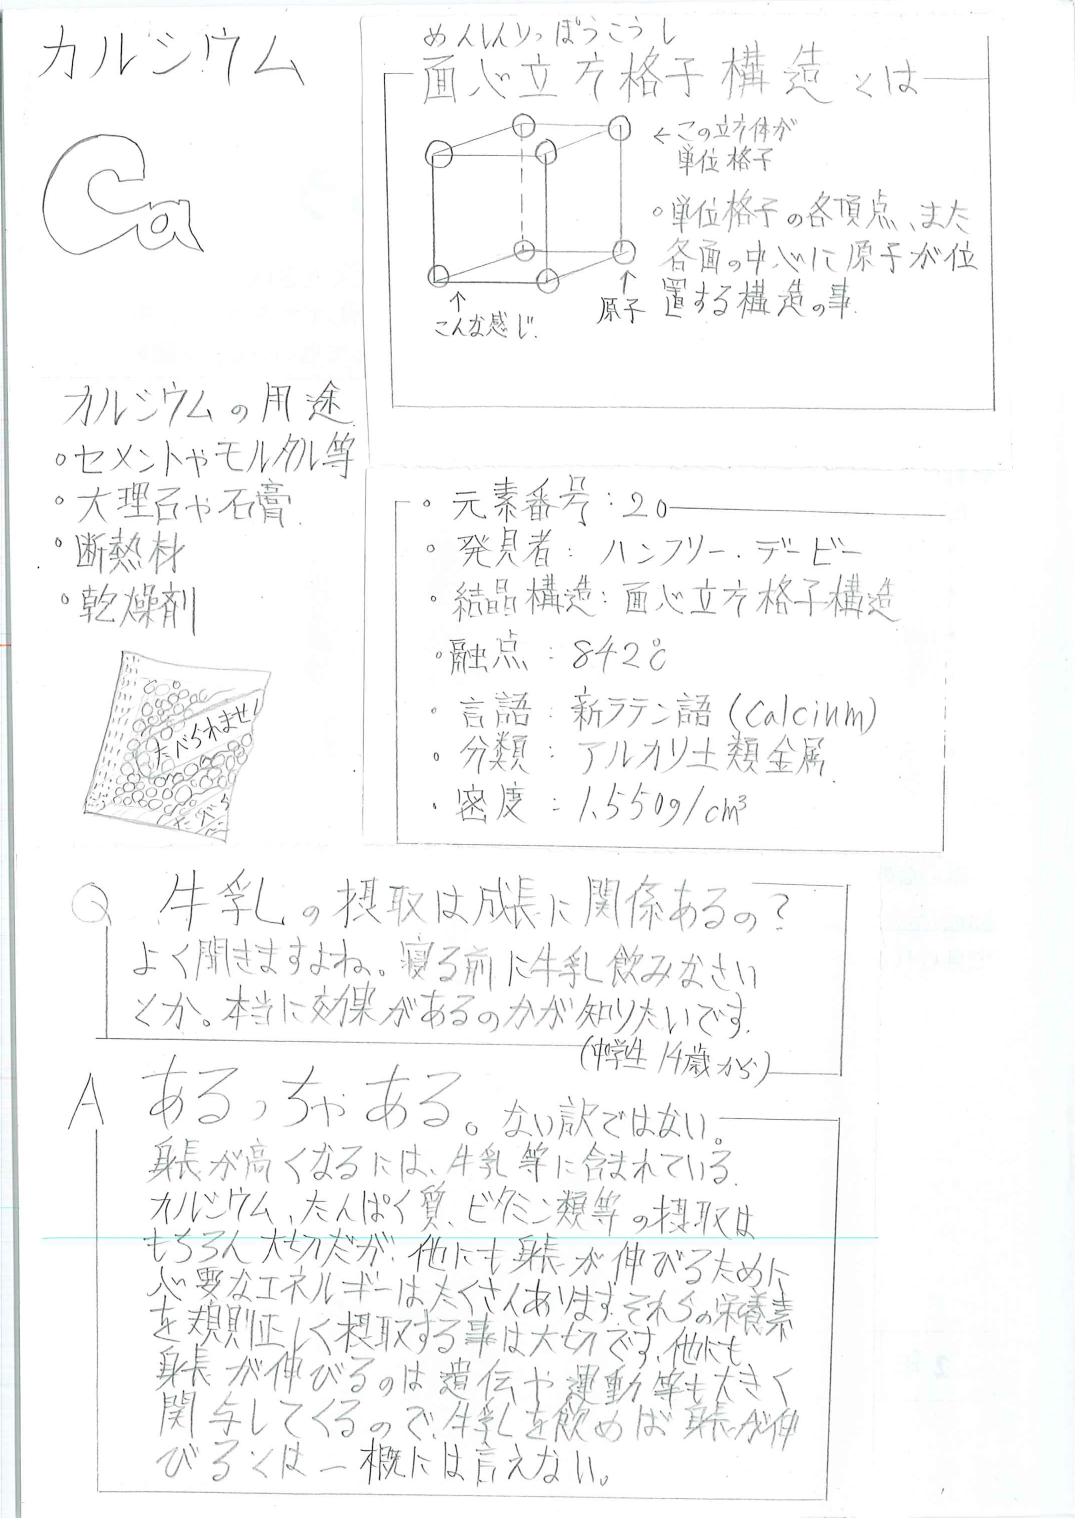 カルシウム
Ca
めんしんりっぽうこうし
面心立方格子構造とは
←この立方体が
単位格子
・単位格子の各頂点、また
各面の中心に原子が位
置する構造の事
↑
原子
↑
こんな感じ.
カルシウムの用途
・セメントやモルタル等
・大理石や石膏
・断熱材
・乾燥剤
たべられませ
たべら
・元素番号:20
・発見者:ハンフリー・デービー
・結晶構造:面心立方格子構造
・融点:842℃
・言語:新ラテン語(Calcium)
・分類:アルカリ土類金属
・密度:1.550g/cm³
Q 牛乳の摂取は成長に関係あるの?
よく聞きますよね。寝る前に牛乳飲みなさい
とか。本当に効果があるのかが知りたいです.
(中学生14歳から)
A あるっちゃある。ない訳ではない。
身長が高くなるには、牛乳等に含まれている
カルシウム、たんぱく質、ビタミン類等の摂取は
もちろん大切だが、他にも身長が伸びるために
必要なエネルギーはたくさんあります.それらの栄養素
を規則正しく摂取する事は大切です.他にも
身長が伸びるのは遺伝や運動等も大きく
関与してくるので、牛乳を飲めば身長が伸
びるとは一概には言えない。